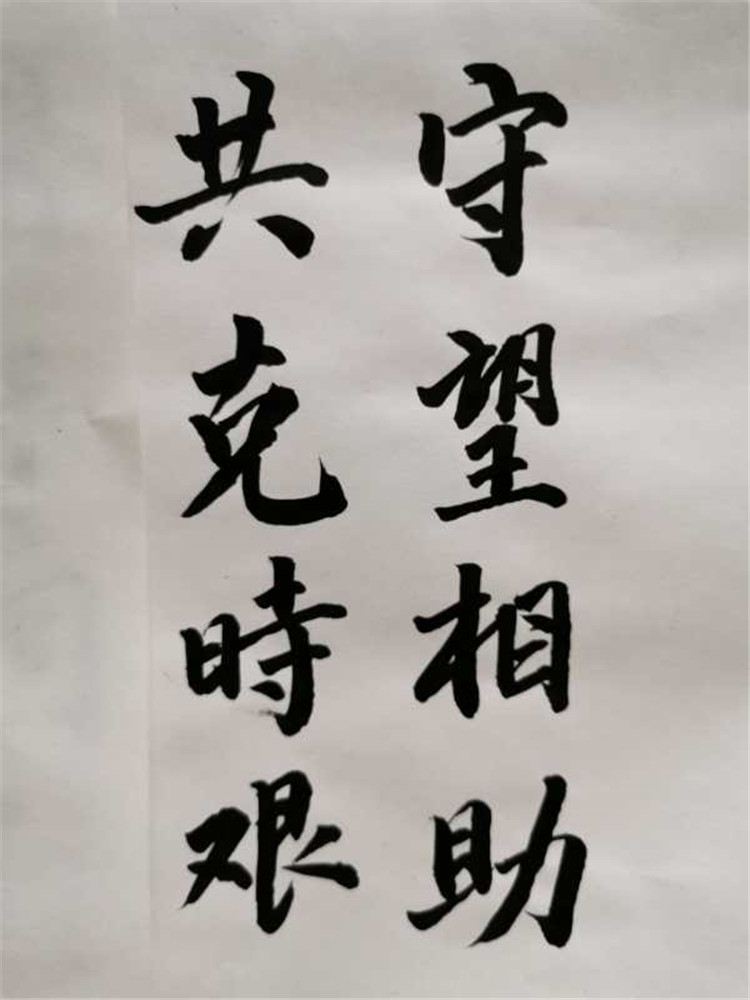 守望相助
共克時艱